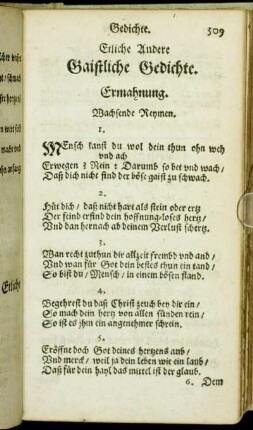 Gedichte.
309
Etliche Andere
Gaistliche Gedichte.
Ermahnung.
Wachsende Reymen.
1.
MEnsch kanst du wol dein thun ohn weh
vnd ach
Erwegen? Nein: Darumb so bet vnd wach/
Daß dich nicht find der böse gaist zu schwach.
2.
Hüt dich/ daß nicht hart als stein oder ertz
Der feind erfind dein hoffnung-loses hertz/
Vnd dan hernach ab deinem Verlust schertz.
3.
Wan recht zuthun dir allzeit frembd vnd and/
Vnd wan für Got dein bestes thun ein tand/
So bist du/ Mensch/ in einem bösen stand.
4.
Begehrest du daß Christ zeuch bey dir ein/
So mach dein hertz von allen sünden rein/
So ist es jhm ein angenehmer schrein.
5.
Eröffne doch Got deines hertzens aub/
Vnd merck/ weil ja dein leben wie ein laub/
Daß für dein hayl das mittel ist der glaub.
6. Dem
Etliche